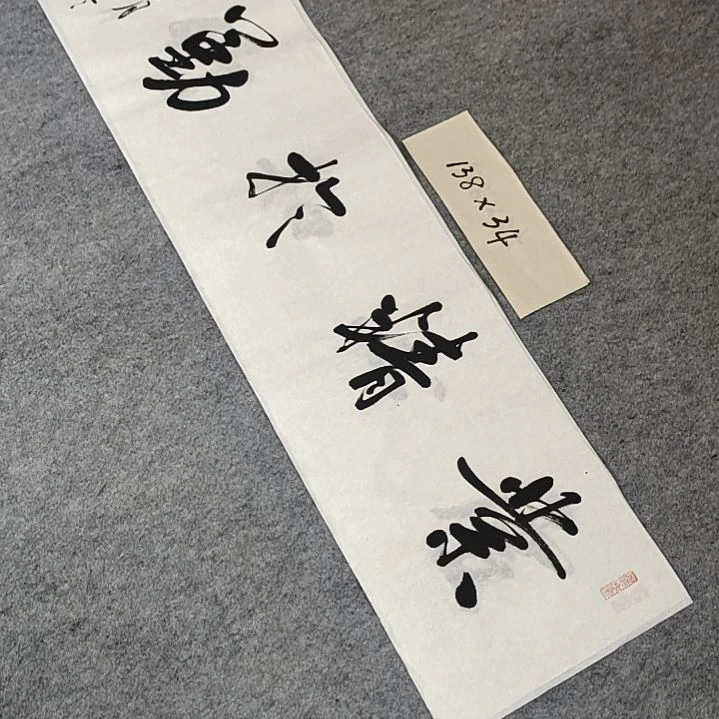 業精於勤
138×34